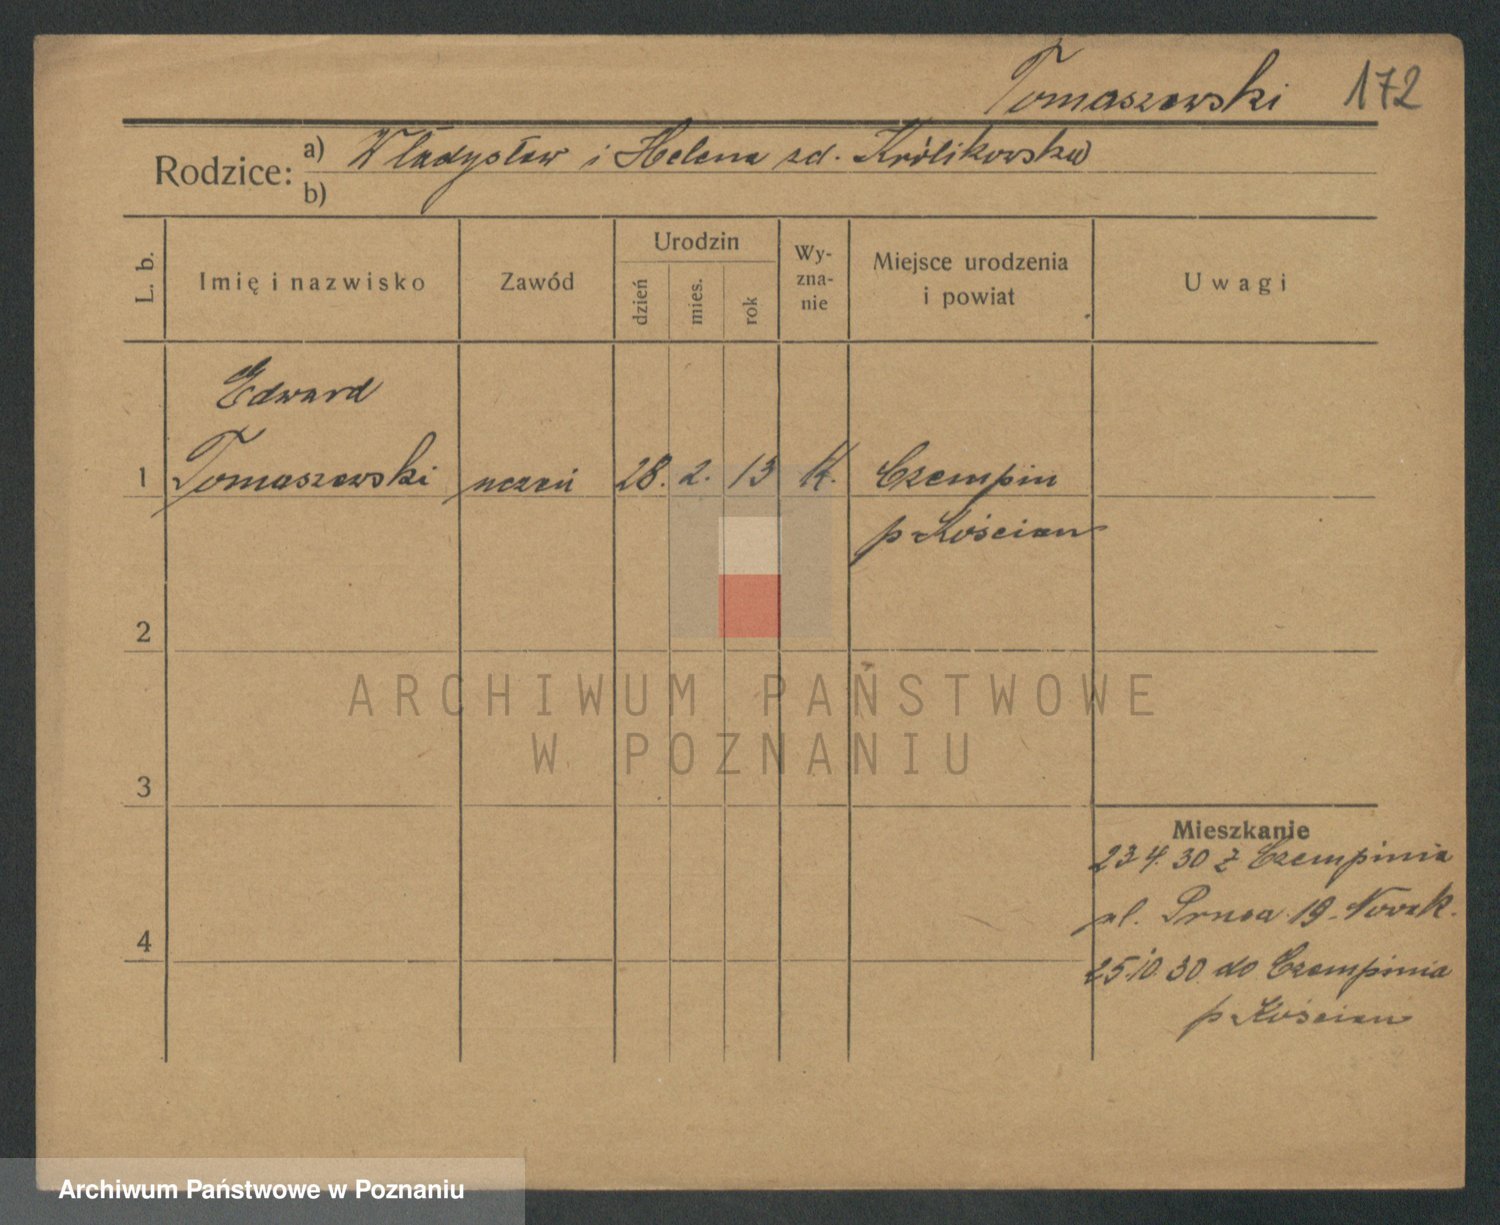 Tomaszewski 172
Rodzice: a) Władysław i Helena zd. Królikowska
b)
L. b. Imię i nazwisko Zawód Urodzin dzień mies. rok Wyznanie Miejsce urodzenia i powiat Uwagi
Edward
1 Tomaszewski uczeń 28. 2. 13 K. Czempiń
p Kościan
2
ARCHIWUM PAŃSTWOWE
W POZNANIU
3
Mieszkanie
23 4. 30 z Czempinia
ul. 19
4
25 10 30 do Czempinia
p Kościan
Archiwum Państwowe w Poznaniu